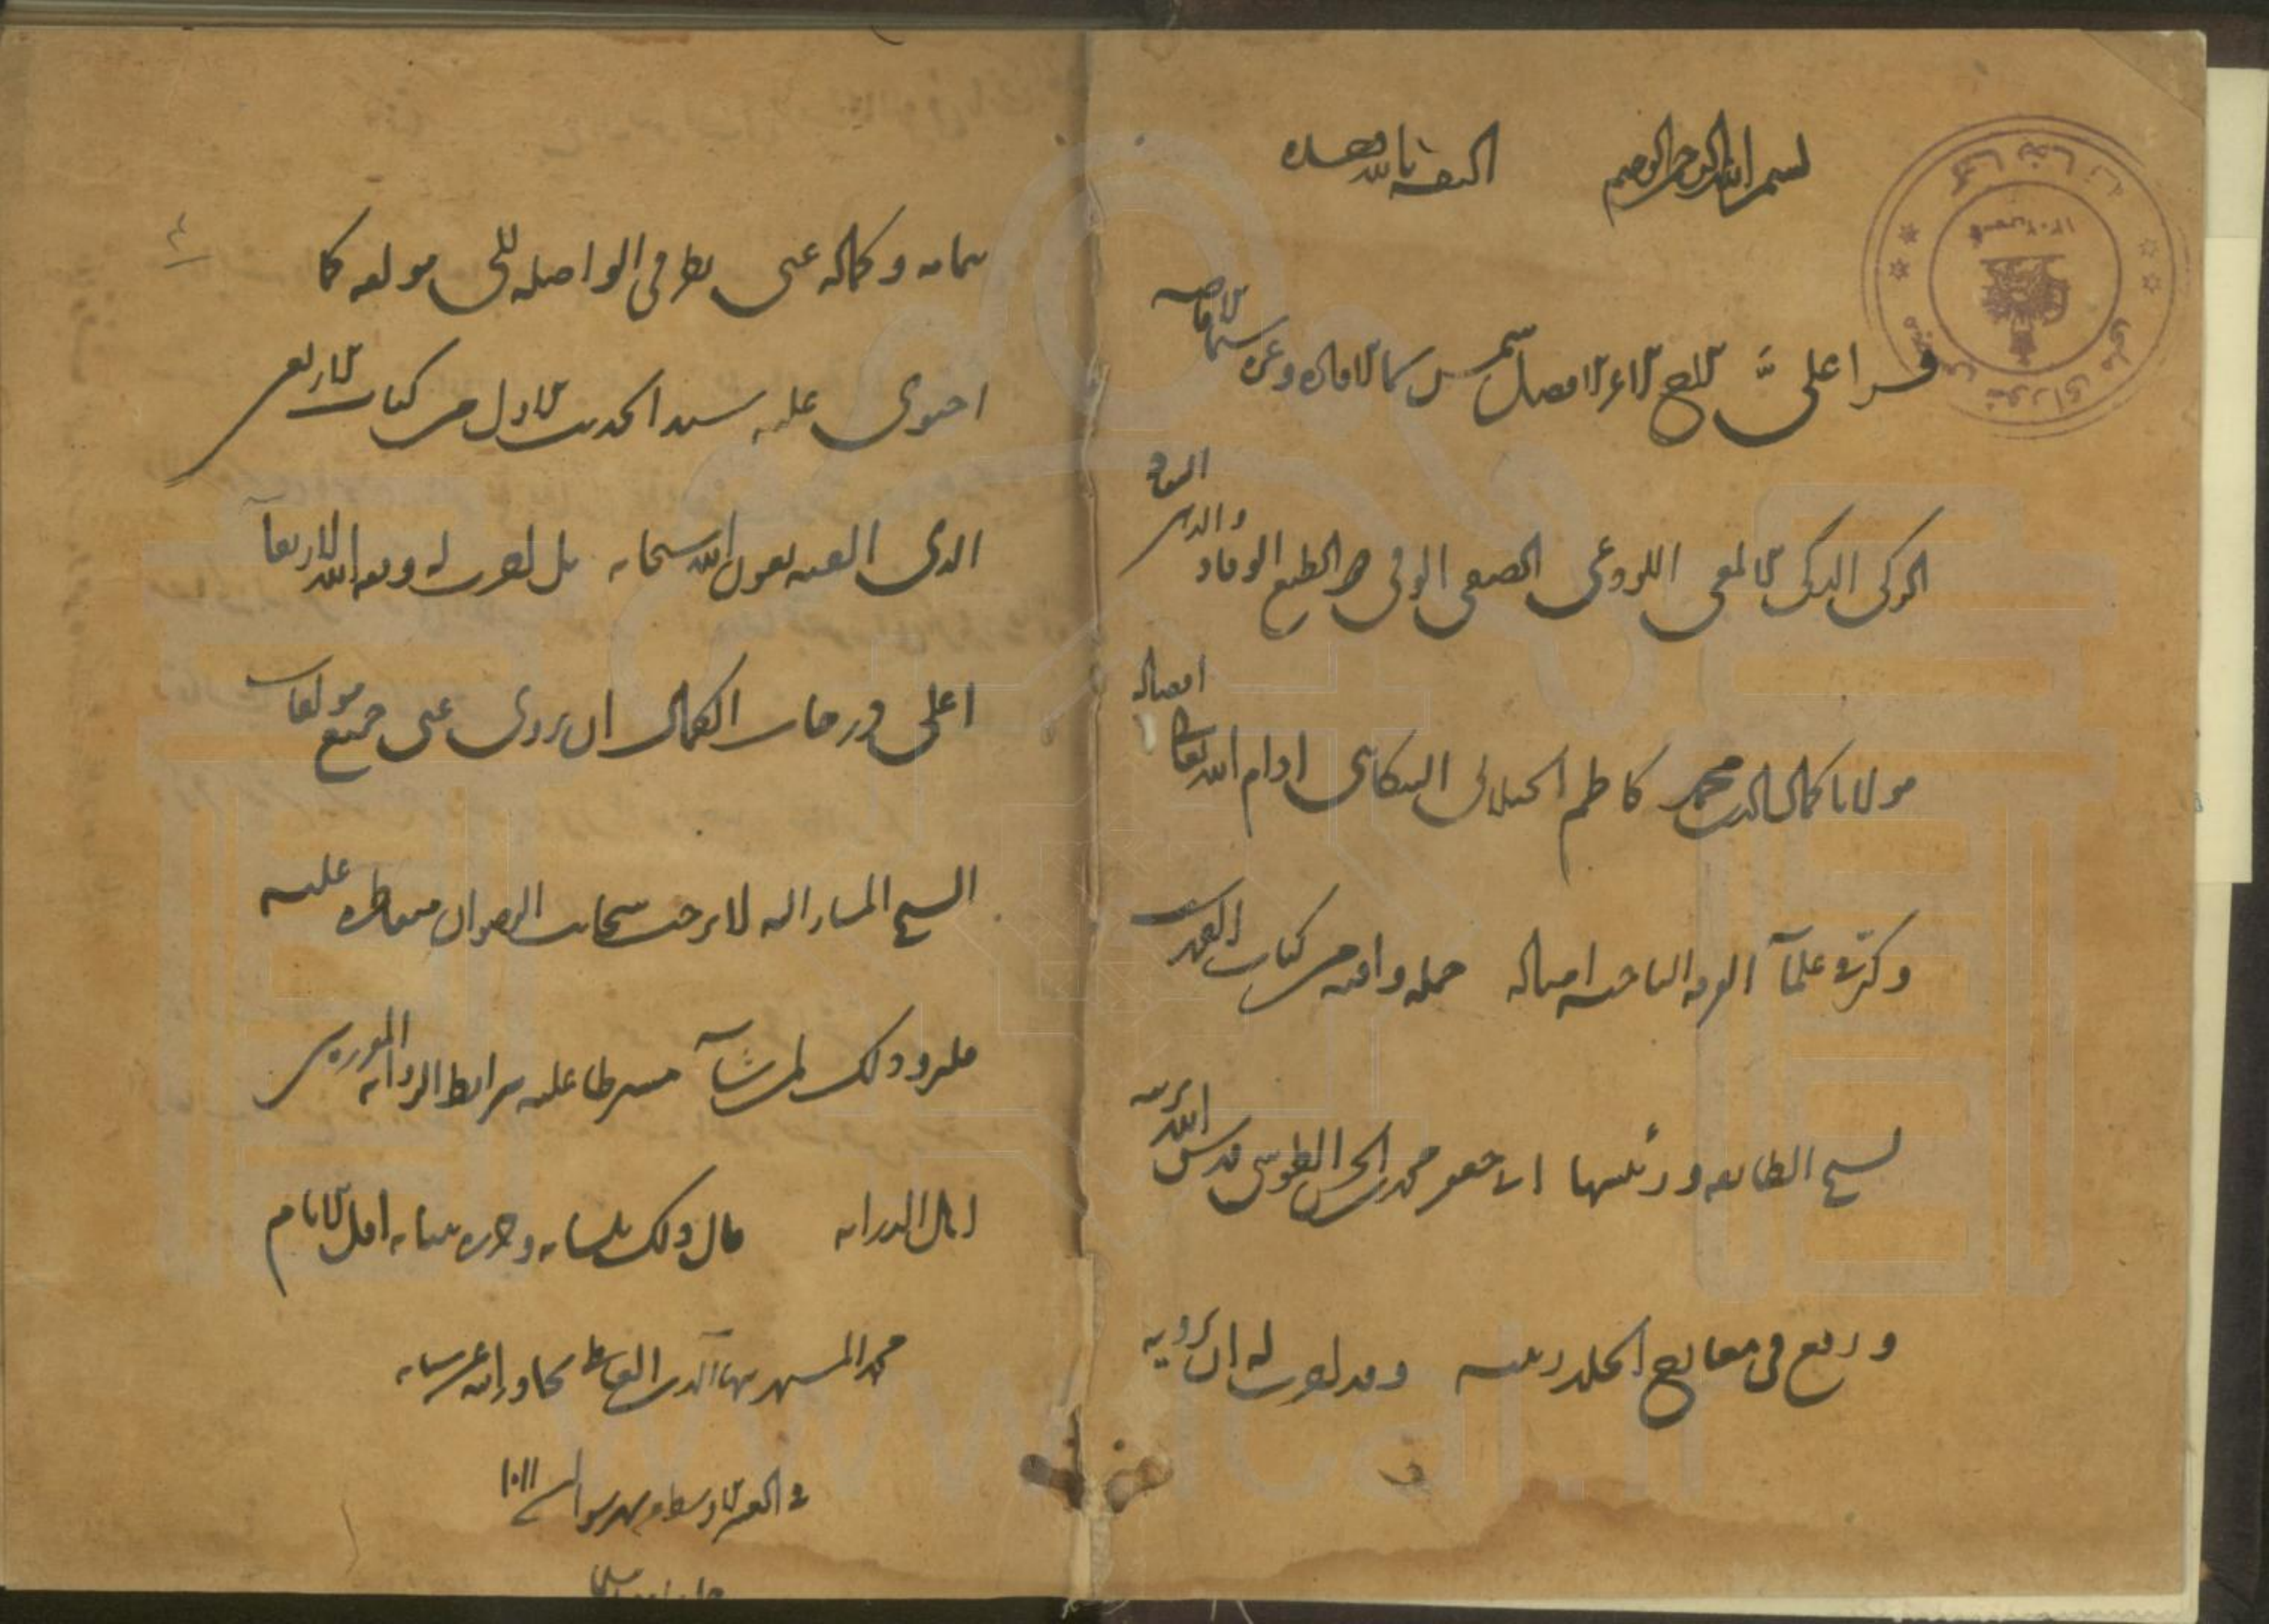 بسم الله الرحمن الرحيم الثقة بالله وحده
قرا علىّ الاخ الاعز الافضل شمس سماء الافادة وغرة سماء الافاضة
الزكى الذكى الالمعى اللوذعى الصفى الوفى ذو الطبع الوقاد
مولانا كمال الدين محمد كاظم الجيلانى التنكابنى ادام الله تعالى افضاله
وكثر فى علماء الفرقة الناجية امثاله جملة وافية من كتاب التهذيب
لشيخ الطائفة ورئيسها ابى جعفر محمد بن الحسن الطوسى قدس الله تربته
ورفع فى معارج الخلد رتبته وقد اجزت له ان يرويه
بتمامه وكماله عنى بطرقى الواصلة الى مولفه كما
احتوى عليه سند الحديث الاول من كتاب الاربعين
الذى الفته بعون الله سبحانه بل اجزت له وفقه الله لارتقاء
اعلى درجات الكمال ان يروى عنى جميع مولفات
الشيخ المشار اليه لا برحت سحائب الرضوان متقاطرة عليه
فليرو ذلك لمن شاء مشترطا عليه شرائط الرواية المقررة بين
ارباب الدراية قال ذلك بلسانه وحرره ببنانه اقل الانام
محمد المشتهر ببهاء الدين العاملى تجاوز الله عن سيئاته
فى العشر الاوسط من شهر شوال سنة ١٠١١